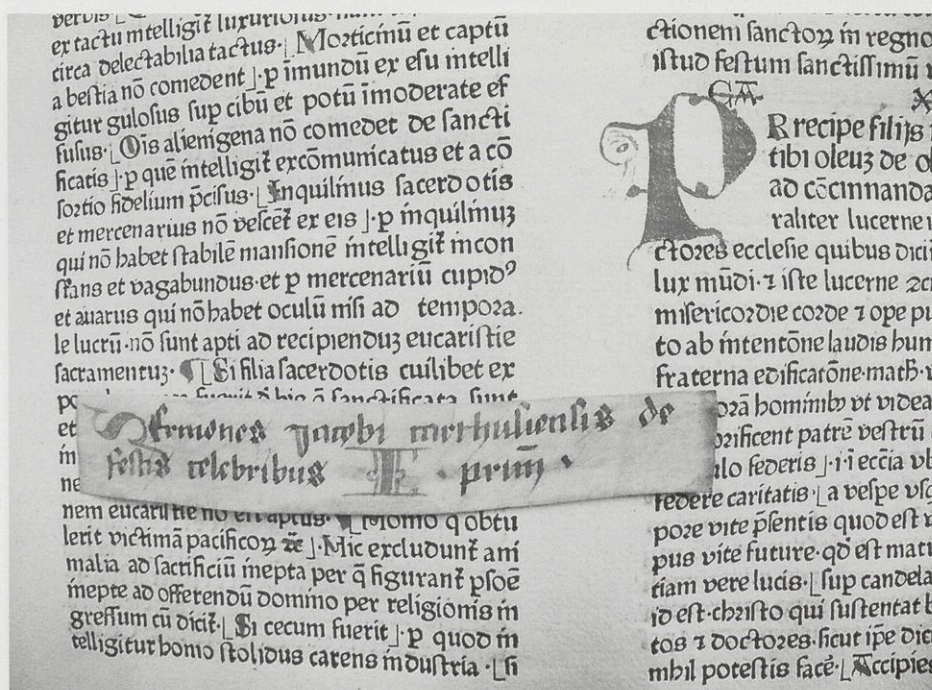 ex tactu intelligit᷑ luxurioſus
circa delectabilia tactus· ⌊Morticinū et captū
a beſtia nō comedent⌋·p īmundū ex eſu intelli
gitur guloſus ſup cibū et potū īmoderate ef
fuſus· ⌊Oīs alienigena nō comedet de ſancti
ficatis⌋·p quē intelligit᷑ excōmunicatus et a cō
ſortio fidelium p̄ciſus· ⌊Inquilinus ſacerdotis
et mercenarius nō veſcet᷑ ex eis⌋·p inquilinuꝫ
qui nō habet ſtabilē manſionē intelligit᷑ incon
ſtans et vagabundus·et p mercenariū cupidꝰ
et auarus qui nō habet oculū niſi ad tempora.
le lucrū·nō ſunt apti ad recipienduꝫ eucariſtie
ſacramentuꝫ· ¶ ⌊Si filia ſacerdotis cuilibet ex
Sermones Jacobi carthuſienſis de
feſtis celebribus I · prim̄ ·
nem eucariſtie nō eſt aptus· ¶ ⌊Homo q obtu
lerit victimā pacificoꝝ ⁊c̄⌋·Hic excludunt᷑ ani
malia ad ſacrificiū inepta per q̄ figurant᷑ pſoē
inepte ad offerendū domino per religionis in
greſſum cū dicit᷑· ⌊Si cecum fuerit⌋·p quod in
telligitur homo ſtolidus carens induſtria ·⌊ſi
ctionem ſanctoꝝ in regno
iſtud feſtum ſanctiſſimū
PRrecipe filijs
tibi oleuꝫ de ol
ad cōcinnanda
raliter lucerne
ctores eccleſie quibus dici
lux mūdi·⁊ iſte lucerne
miſericordie corde ⁊ ope pu
to ab intentōne laudis hum
fraterna edificatōne·math·
orā hominibꝰ vt videa
orificent patrē veſtrū
ulo federis⌋·i·i eccīa vb
federe caritatis· ⌊a veſpe vſ
pore vite p̄ſentis quod eſt
pus vite future·qd̄ eſt matu
tiam vere lucis· ⌊ſup candela
id eſt·chriſto qui ſuſtentat
tos ⁊ doctores·ſicut ip̄e dic
nihil poteſtis facē· ⌊Accipies